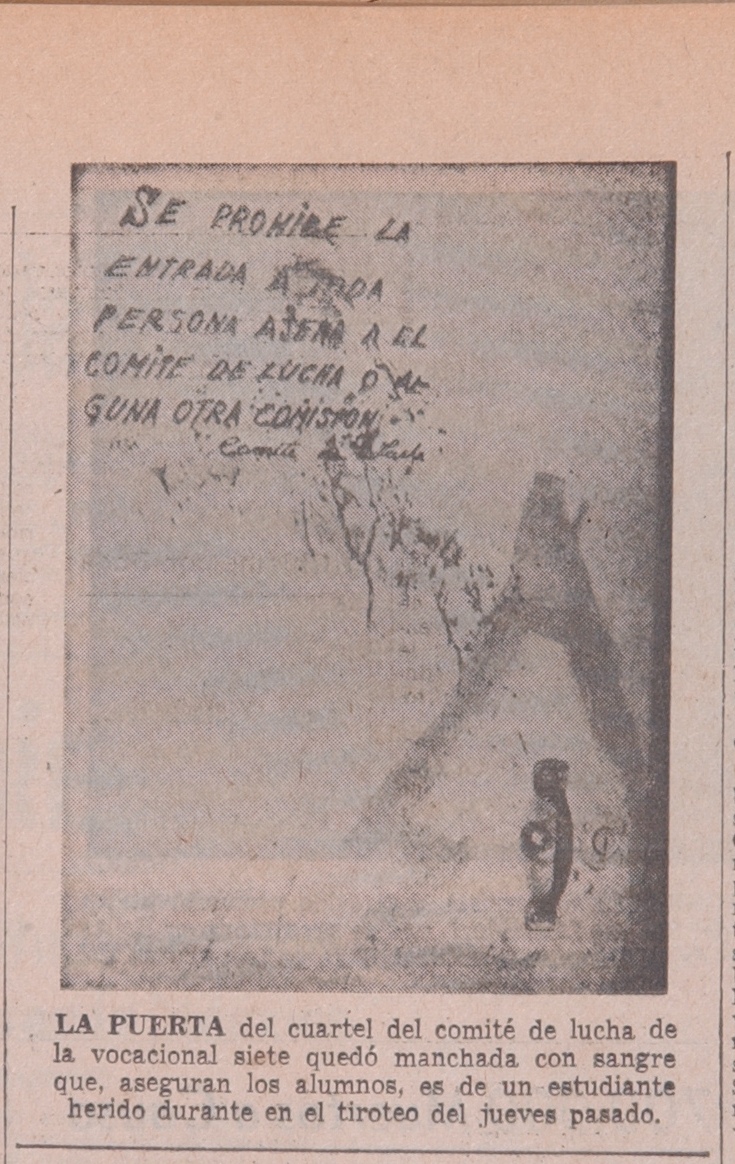 SE PROHIBE LA
ENTRADA A TODA
PERSONA AJENA A EL
COMITE DE LUCHA O AL
GUNA OTRA COMISION
Comité de Lucha
LA PUERTA del cuartel del comité de lucha de
la vocacional siete quedó manchada con sangre
que, aseguran los alumnos, es de un estudiante
herido durante en el tiroteo del jueves pasado.